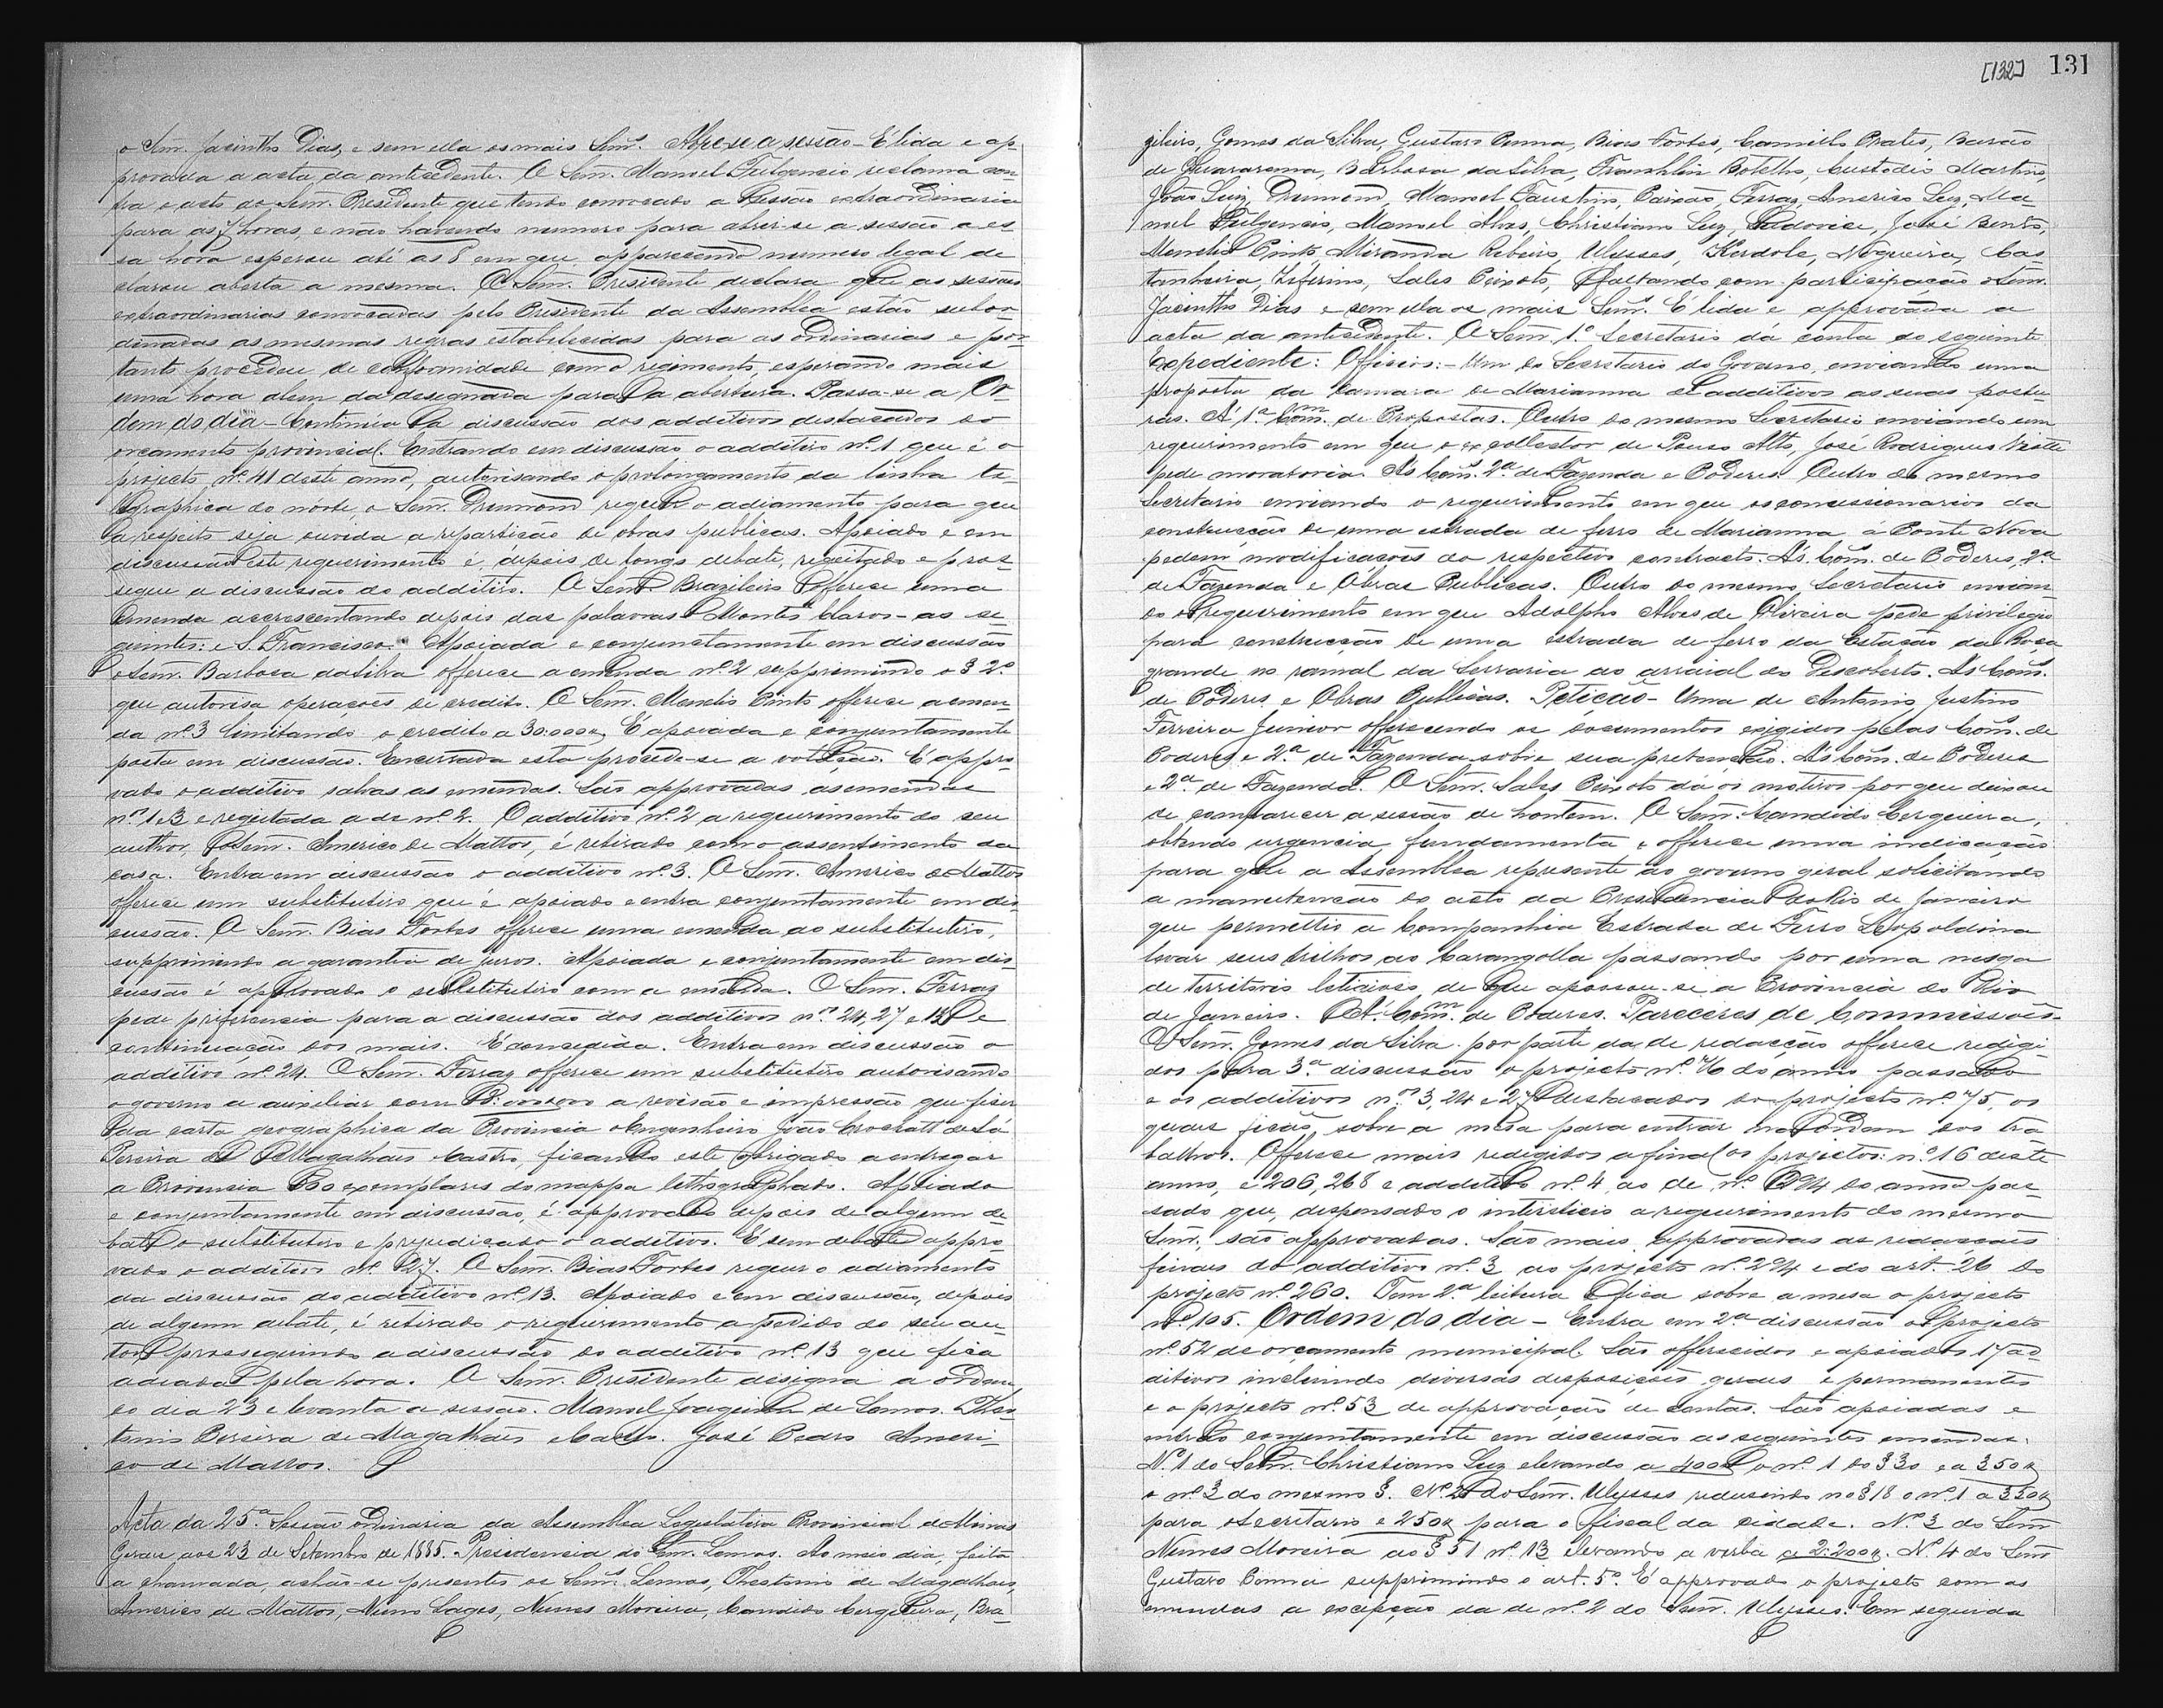 o Snr. Jacintho Dias, e sem ella os mais Snrs. Abre-se a sessão - É lida e ap-
provada a acta da antecedente. O Snr. Manoel Fulgencio reclama con-
tra o acto do Snr. Presidente que tendo convocado a sessão extraordinaria
para as 7 horas, e não havendo numero para abrir-se a sessão a es-
sa hora esperou até as 8 em que apparecendo numero legal de
clarou aberta a mesma. O Snr. Presidente declara que as sessões
extraordinarias convocadas pelo Presidente da Assemblea estão subor-
dinadas as mesmas regras estabelecidas para as ordinarias e por-
tanto procedeu de conformidade com o regimento, esperando mais
uma hora alem da designada para a abertura. Passa-se a Or-
dem do dia - Continúa a discussão dos additivos destacados do
orçamento provincial. Entrando em discussão o additivo nº 1 que é o
projecto nº 41 deste anno, autorisando o prolongamento da linha te-
legraphica do norte, o Snr. Drumond requer o adiamento para que
a respeito seja ouvida a repartição de obras publicas. Apoiado e em
discussão este requerimento é, depois de longo debate, regeitado e pros-
segue a discussão do additivo. O Snr. Brazileiro offerece uma
emenda accrescentando depois das palavras Montes Claros - as se-
guintes: e S. Francisco. Apoiada e conjunctamente em discussão
o Snr. Barbosa da Silva offerece a emenda nº 2 supprimindo o § 2º
que autorisa operações de credito. O Snr. Mendes Pinto offerece a emen-
da nº 3 limitando o credito a 30:000$. É apoiada e conjuntamente
posta em discussão. Encerrada esta procede-se a votação. É appro-
vado o additivo salvas as emendas. São approvadas as emendas
nos 1 e 3 e regeitada a de nº 2. O additivo nº 2 a requerimento do seu
author, o Snr. Americo de Mattos, é retirado com o assentimento da
casa. Entra em discussão o additivo nº 3. O Snr. Americo de Mattos
offerece um substitutivo que é apoiado e entra conjuntamente em dis-
cussão. O Snr. Bias Fortes offerece uma emenda ao substitutivo,
supprimindo a garantia de juros. Apoiada e conjuntamente em dis-
cussão é approvado o substitutivo com a emenda. O Snr. Ferraz
pede preferencia para a discussão dos additivos nos 24, 27 e 13 e
continuação dos mais. É concedida. Entra em discussão o
additivo nº 24. O Snr. Ferraz offerece um substitutivo autorisando
o governo a auxiliar com a revisão e impressão que fizer
da carta geographica da Provincia o Engenheiro João Crockatt de Sá
Pereira de Magalhães Castro, ficando este obrigado a entregar
a Provincia exemplares do mappa lithographado. Apoiado
e conjuntamente em discussão, é approvado depois de algum de-
bate o substitutivo e prejudicado o additivo. É sem debate appro-
vado o additivo nº 27. O Snr. Bias Fortes requer o adiamento
da discussão do additivo nº 13. Apoiado e em discussão, depois
de algum debate, é retirado o requerimento a pedido do seu au-
tor prosseguindo a discussão do additivo nº 13 que fica
adiada pela hora. O Snr. Presidente designa a ordem
do dia 23 e levanta a sessão. Manoel Joaquim de Lemos. Theo-
tonio Pereira de Magalhães e Castro. José Pedro Ameri-
co de Mattos.
Acta da 25ª Sessão ordinaria da Assemblea Legislativa Provincial de Minas
Geraes aos 23 de Setembro de 1885. Presidencia do Snr. Lemos. Ao meio dia, feita
a chamada, achão-se presentes os Snrs. Lemos, Theotonio de Magalhães,
Americo de Mattos, Nuno Lages, Nunes Moreira, Candido Cerqueira, Bra-
[132] 131
zileiro, Gomes da Silva, Gustavo Penna, Bias Fortes, Camillo Prates, Barão
de Guararema, Barbosa da Silva, Franklin Botelho, Custodio Martins,
João Luiz, Drumond, Manoel Faustino, Paixão, Ferraz, Americo Luz, Ma-
noel Fulgencio, Manoel Alves, Christiano Luz, Ludovice, José Bento,
Mendes Pinto, Miranda Ribeiro, Ulysses, Kerdole, Nogueira, Cas-
tanheira, Zeferino, Sales Peixoto, faltando com participação o Snr.
Jacintho Dias e sem ella os mais Snrs. É lida e approvada a
acta da antecedente. O Snr. 1º Secretario dá conta do seguinte
Expediente: Officios: - Um do Secretario do Governo, enviando uma
proposta da Camara de Marianna de additivos as suas postu-
ras. Á 1ª Comm. de Propostas. Outro do mesmo Secretario enviando um
requerimento em que o ex collector de Pouso Alto, José Rodrigues
pede moratoria. Ás Coms. 2ª de Fazenda e Poderes. Outro do mesmo
Secretario enviando o requerimento em que os concessionarios da
construcção de uma estrada de ferro de Marianna á Ponte Nova
pedem modificações do respectivo contracto. Ás Coms. de Poderes, 2ª
de Fazenda e Obras Publicas. Outro do mesmo Secretario envian-
do o requerimento em que Adolpho Alves de Oliveira pede privilegio
para construcção de uma estrada de ferro da Estação da Roça
grande no ramal da Serraria ao arraial do Descoberto. Ás Coms.
de Poderes e Obras Publicas. Petição - Uma de Antonio Justino
Ferreira Junior offerecendo os documentos exigidos pelas Coms. de
Poderes e 2ª de Fazenda sobre sua pretenção. Ás Coms. de Poderes
e 2ª de Fazenda. O Snr. Sales Peixoto dá os motivos por que deixou
de comparecer a sessão de hontem. O Snr. Candido Cerqueira,
obtendo urgencia, fundamenta e offerece uma indicação
para que a Assemblea represente ao governo geral solicitando
a manutenção do acto da Presidencia do Rio de Janeiro
que permittio a Companhia Estrada de Ferro Leopoldina
levar seus trilhos ao Carangolla passando por uma nesga
de territorio leticioso, de que apossou-se a Provincia do Rio
de Janeiro. Á Comm. de Poderes. Pareceres de Commissões -
O Snr. Gomes da Silva por parte da de redacção offerece redigi-
dos para 3ª discussão o projecto nº 76 do anno passado
e os additivos nos 3, 24 e 27 destacados do projecto nº 75, os
quaes ficão sobre a mesa para entrar na ordem dos tra
balhos. Offerece mais redigidos a final os projectos: nº 16 deste
anno, e 206, 268 e additivo nº 4 ao de nº 294 do anno pas-
sado que, dispensado o intersticio a requerimento do mesmo
Snr., são approvadas. São mais approvadas as redacções
finaes do additivo nº 3 ao projecto nº 294 e do art. 26 do
projecto nº 260. Tem 2ª leitura e fica sobre a mesa o projecto
nº 105. Ordem do dia - Entra em 2ª discussão o projecto
nº 52 de orçamento municipal. São offerecidos e apoiados 17 ad-
ditivos incluindo diversas disposições geraes e permanentes
e o projecto nº 53 de approvação de contas. São apoiadas e
entrão conjuntamente em discussão as seguintes emendas.
Nº 1 do Snr. Christiano Luz elevando a 400$ o nº 1 do § 30 e a 350$
o nº 3 do mesmo §. Nº 2 do Snr. Ulysses reduzindo no § 18 o nº 1 a 350$
para o Secretario e 250$ para o fiscal da cidade. Nº 3 do Snr.
Nunes Moreira ao § 51 nº 13 elevando a verba a 2:200$. Nº 4 do Snr.
Gustavo Penna supprimindo o art. 5º. É approvado o projecto com as
emendas a excepção da de nº 2 do Snr. Ulysses. Em seguida